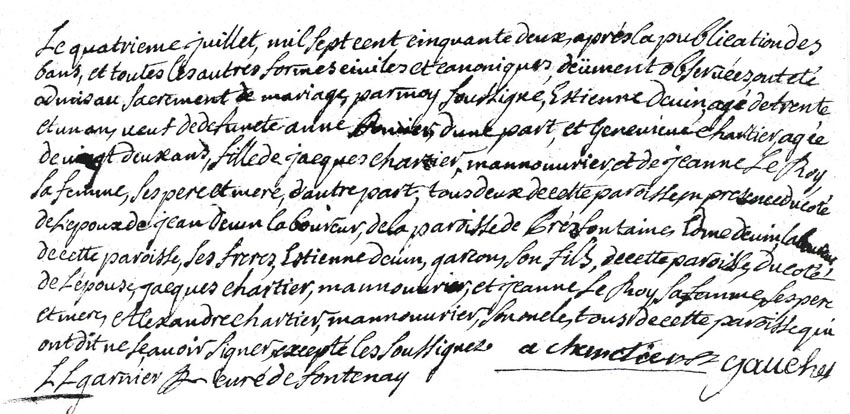 Le quatrieme juillet, mil sept cent cinquante deux, après la publication des
bans, et toutes les autres formes civiles et canoniques, deüement observées, ont eté
admis au sacrement de mariage, par moy soussigné, Estienne devin, agé de trente
et un an, veuf de defuncte anne d'une part, et Genevieve chartier, agée
de vingt deux ans, fille de jacques chartier, mannouvrier, et de jeanne Le Roy
sa femme, ses pere et mere, d'autre part, tous deux de cette paroisse, en presence du coté
de L'epoux de jean devin laboureur, de la paroisse de Brézfontaine, Edme devin laboureur
de cette paroisse, ses freres, Estienne devin, garcon, son fils, de cette paroisse, du coté
de L'épouse, jacques chartier, mannouvrier, et jeanne Le Roy, sa femme, ses pere
et mere, et Alexandre chartier, mannouvrier, son oncle, tous de cette paroisse, qui
ont dit ne sçavoir signer excepté les soussignez gauchez
LLgarnier curé de fontenay